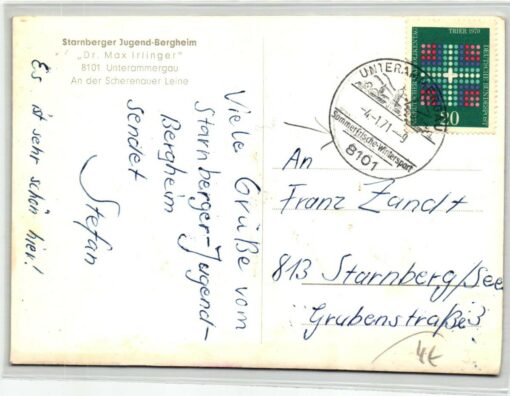 Starnberger Jugend-Bergheim
„Dr. Max Irlinger"
8101 Unterammergau
An der Scherenauer Leine
Viele Grüße vom
Starnberger-Jugend-
Bergheim
sendet
Stefan
Es ist sehr schön hier!
TRIER 1970
DEUTSCHE BUNDESPOST
20
UNTERAMMERGAU
-4-1.71-9
Sommerfrische-Wintersport
8101
An
Franz Zandt
813 Starnberg/See
Grubenstraße 3
4€